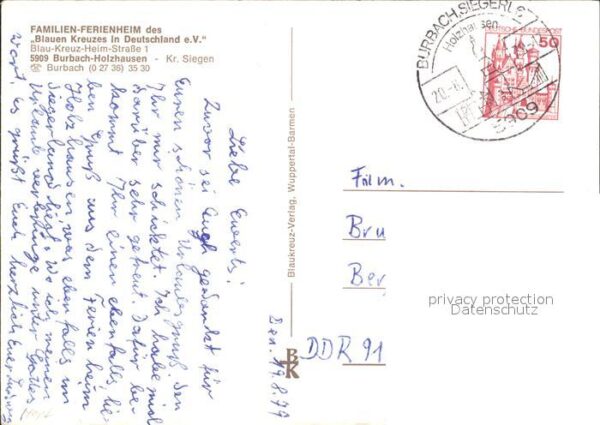 FAMILIEN-FERIENHEIM des
„Blauen Kreuzes in Deutschland e.V."
Blau-Kreuz-Heim-Straße 1
5909 Burbach-Holzhausen - Kr. Siegen
☏ Burbach (0 27 36) 35 30
Liebe Ewerts!
Zuvor sei Euch gedankt für
Euren schönen Urlaubsgruß den
Ihr mir schicktet. Ich habe mich
darüber sehr gefreut. Dafür be-
kommt Ihr einen ebenfalls lie-
ben Gruß aus dem Ferienheim
Holzhausen, was ebenfalls im
Siegerland liegt, wo ich meinen
Urlaub verbringe unter Gottes
Wort. Es grüßt Euch herzlich Euer Ludwig
Blaukreuz-Verlag, Wuppertal-Barmen
BK
19.8.79
BURBACH, SIEGERL
Holzhausen
5909
50
Fam.
Bru
Ber
DDR 91
privacy protection
Datenschutz